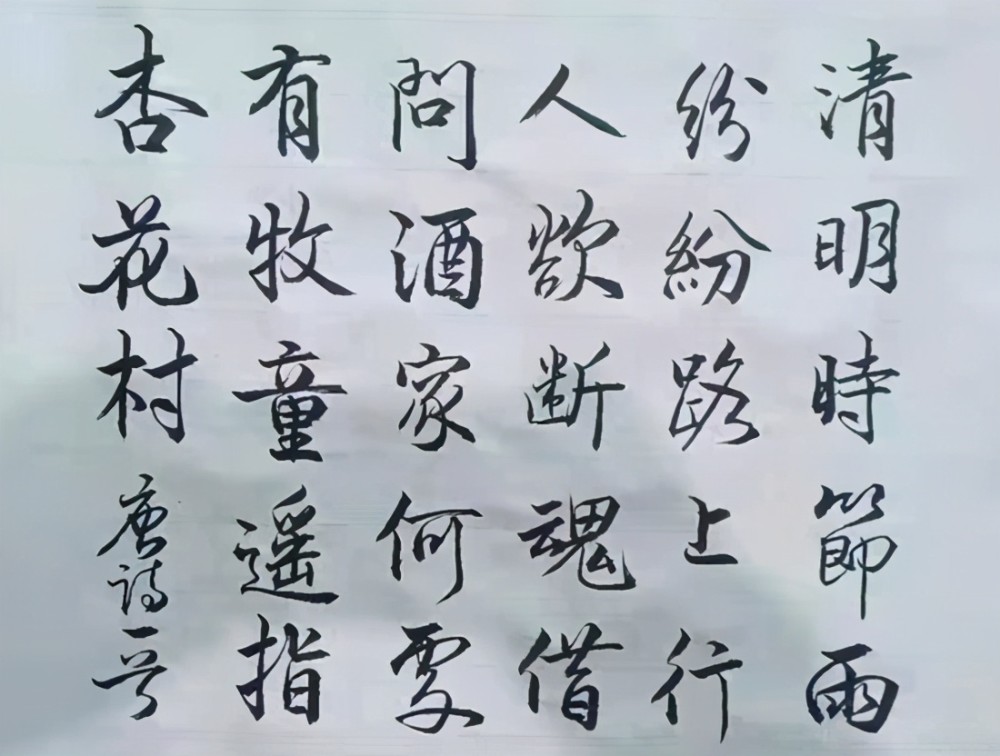 清明時節雨
紛紛路上行
人欲断魂借
問酒家何處
有牧童遥指
杏花村唐詩一首